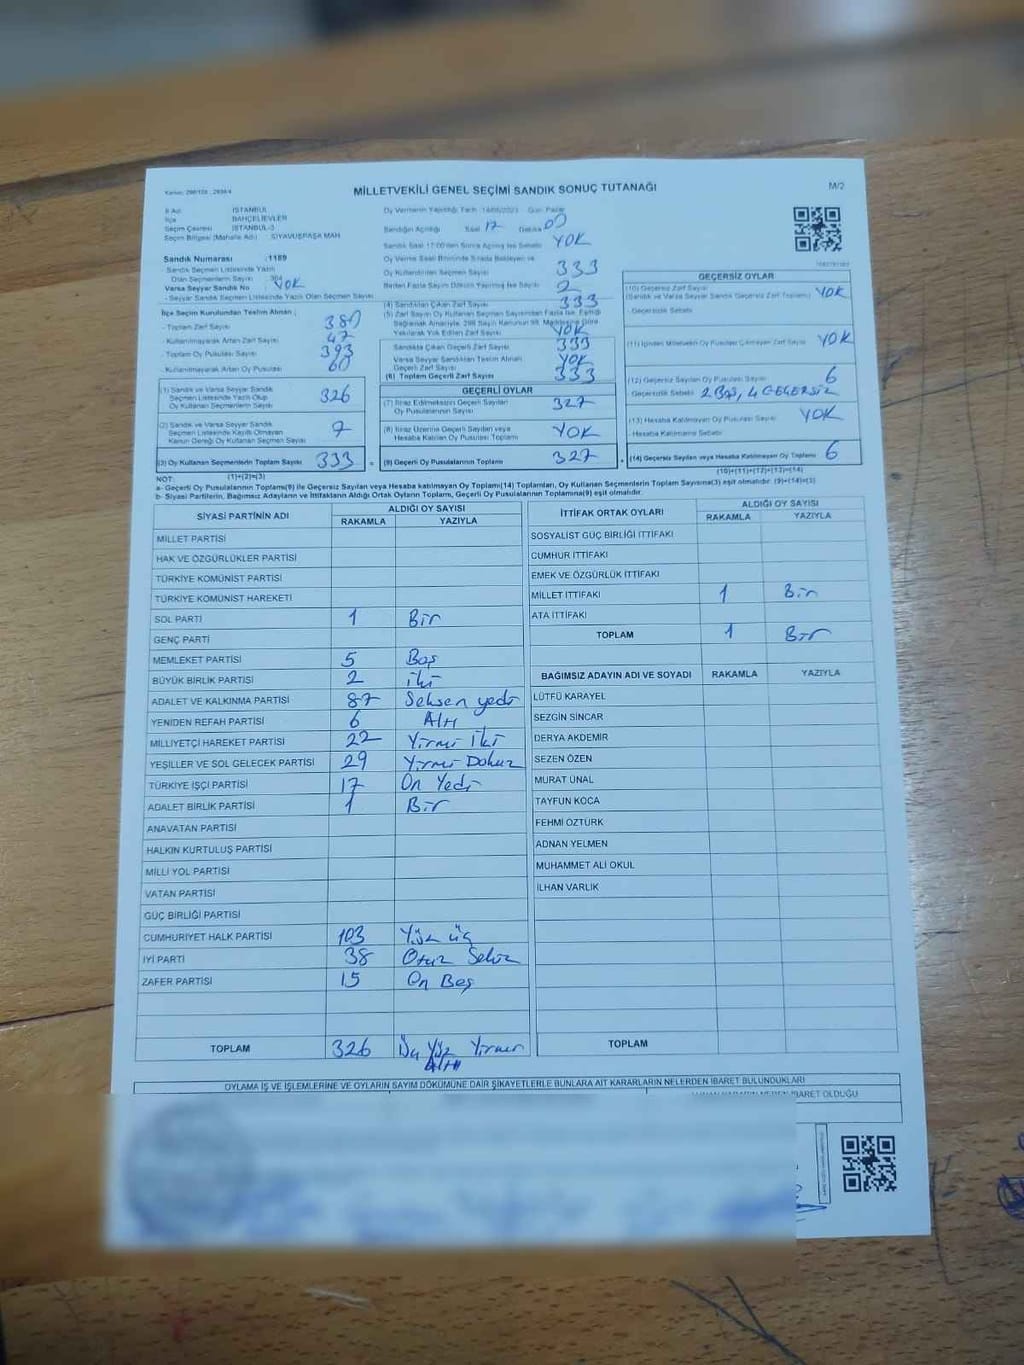 MİLLETVEKİLİ GENEL SEÇİMİ SANDIK SONUÇ TUTANAĞI
M/2
İl Adı : İSTANBUL
İlçe : BAHÇELİEVLER
Seçim Çevresi : İSTANBUL-3
Seçim Bölgesi (Mahalle Adı) : SİYAVUŞPAŞA MAH
Sandık Numarası : 1189
- Sandık Seçmen Listesinde Yazılı
Olan Seçmenlerin Sayısı
Varsa Seyyar Sandık No YOK
- Seyyar Sandık Seçmen Listesinde Yazılı Olan Seçmen Sayısı
İlçe Seçim Kurulundan Teslim Alınan ;
- Toplam Zarf Sayısı 380
- Kullanılmayarak Artan Zarf Sayısı 47
- Toplam Oy Pusulası Sayısı 393
- Kullanılmayarak Artan Oy Pusulası 60
(1) Sandık ve Varsa Seyyar Sandık
Seçmen Listesinde Yazılı Olup
Oy Kullanan Seçmenlerin Sayısı 326
(2) Sandık ve Varsa Seyyar Sandık
Seçmen Listesinde Kayıtlı Olmayan
Kanun Gereği Oy Kullanan Seçmen Sayısı 7
(3) Oy Kullanan Seçmenlerin Toplam Sayısı 333
(1)+(2)=(3)
Oy Vermenin Yapıldığı Tarih : 14/05/2023 Gün : Pazar
Sandığın Açıldığı Saat 17 Dakika 00
Sandık Saat 17:00'den Sonra Açılmış İse Sebebi YOK
Oy Verme Saati Bitiminde Sırada Bekleyen ve
Oy Kullandırılan Seçmen Sayısı 333
Birden Fazla Sayım Döküm Yapılmış İse Sayısı 2
(4) Sandıktan Çıkan Zarf Sayısı 333
(5) Zarf Sayısı Oy Kullanan Seçmen Sayısından Fazla İse, Fazlalığı
Sağlamak Amacıyla, 298 Sayılı Kanunun 98. Maddesine Göre
Yakılarak Yok Edilen Zarf Sayısı YOK
Sandıkta Çıkan Geçerli Zarf Sayısı 333
Varsa Seyyar Sandıktan Teslim Alınan
Geçerli Zarf Sayısı YOK
(6) Toplam Geçerli Zarf Sayısı 333
GEÇERLİ OYLAR
(7) İtiraz Edilmeksizin Geçerli Sayılan
Oy Pusulalarının Sayısı 327
(8) İtiraz Üzerine Geçerli Sayılan veya
Hesaba Katılan Oy Pusulası Toplamı YOK
(9) Geçerli Oy Pusulalarının Toplamı 327
GEÇERSİZ OYLAR
(10) Geçersiz Zarf Sayısı YOK
(Sandık ve Varsa Seyyar Sandık Geçersiz Zarf Toplamı)
- Geçersizlik Sebebi
(11) İçinden Milletvekili Oy Pusulası Çıkmayan Zarf Sayısı YOK
(12) Geçersiz Sayılan Oy Pusulası Sayısı 6
Geçersizlik Sebebi 2 BOŞ, 4 GEÇERSİZ
(13) Hesaba Katılmayan Oy Pusulası Sayısı YOK
- Hesaba Katılmama Sebebi
(14) Geçersiz Sayılan veya Hesaba Katılmayan Oy Toplamı 6
(10)+(11)+(12)+(13)=(14)
NOT:
a- Geçerli Oy Pusulalarının Toplamı(9) ile Geçersiz Sayılan veya Hesaba katılmayan Oy Toplamı(14) Toplamları, Oy Kullanan Seçmenlerin Toplam Sayısına(3) eşit olmalıdır. (9)+(14)=(3)
b- Siyasi Partilerin, Bağımsız Adayların ve İttifakların Aldığı Ortak Oyların Toplamı, Geçerli Oy Pusulalarının Toplamına(9) eşit olmalıdır.
SİYASİ PARTİNİN ADI ALDIĞI OY SAYISI
RAKAMLA YAZIYLA
MİLLET PARTİSİ
HAK VE ÖZGÜRLÜKLER PARTİSİ
TÜRKİYE KOMÜNİST PARTİSİ
TÜRKİYE KOMÜNİST HAREKETİ
SOL PARTİ 1 Bir
GENÇ PARTİ
MEMLEKET PARTİSİ 5 Beş
BÜYÜK BİRLİK PARTİSİ 2 iki
ADALET VE KALKINMA PARTİSİ 87 Seksen yedi
YENİDEN REFAH PARTİSİ 6 Altı
MİLLİYETÇİ HAREKET PARTİSİ 22 Yirmi İki
YEŞİLLER VE SOL GELECEK PARTİSİ 29 Yirmi Dokuz
TÜRKİYE İŞÇİ PARTİSİ 17 On Yedi
ADALET BİRLİK PARTİSİ 1 Bir
ANAVATAN PARTİSİ
HALKIN KURTULUŞ PARTİSİ
MİLLİ YOL PARTİSİ
VATAN PARTİSİ
GÜÇ BİRLİĞİ PARTİSİ
CUMHURİYET HALK PARTİSİ 103 Yüz üç
İYİ PARTİ 38 Otuz Sekiz
ZAFER PARTİSİ 15 On Beş
TOPLAM 326 Üç Yüz Yirmi
Altı
İTTİFAK ORTAK OYLARI ALDIĞI OY SAYISI
RAKAMLA YAZIYLA
SOSYALİST GÜÇ BİRLİĞİ İTTİFAKI
CUMHUR İTTİFAKI
EMEK VE ÖZGÜRLÜK İTTİFAKI
MİLLET İTTİFAKI 1 Bir
ATA İTTİFAKI
TOPLAM 1 Bir
BAĞIMSIZ ADAYIN ADI VE SOYADI RAKAMLA YAZIYLA
LÜTFÜ KARAYEL
SEZGİN SİNCAR
DERYA AKDEMİR
SEZEN ÖZEN
MURAT ÜNAL
TAYFUN KOCA
FEHMİ ÖZTÜRK
ADNAN YELMEN
MUHAMMET ALİ OKUL
İLHAN VARLIK
TOPLAM
OYLAMA İŞ VE İŞLEMLERİNE VE OYLARIN SAYIM DÖKÜMÜNE DAİR ŞİKAYETLERLE BUNLARA AİT KARARLARIN NELERDEN İBARET BULUNDUKLARI
İBARET OLDUĞU